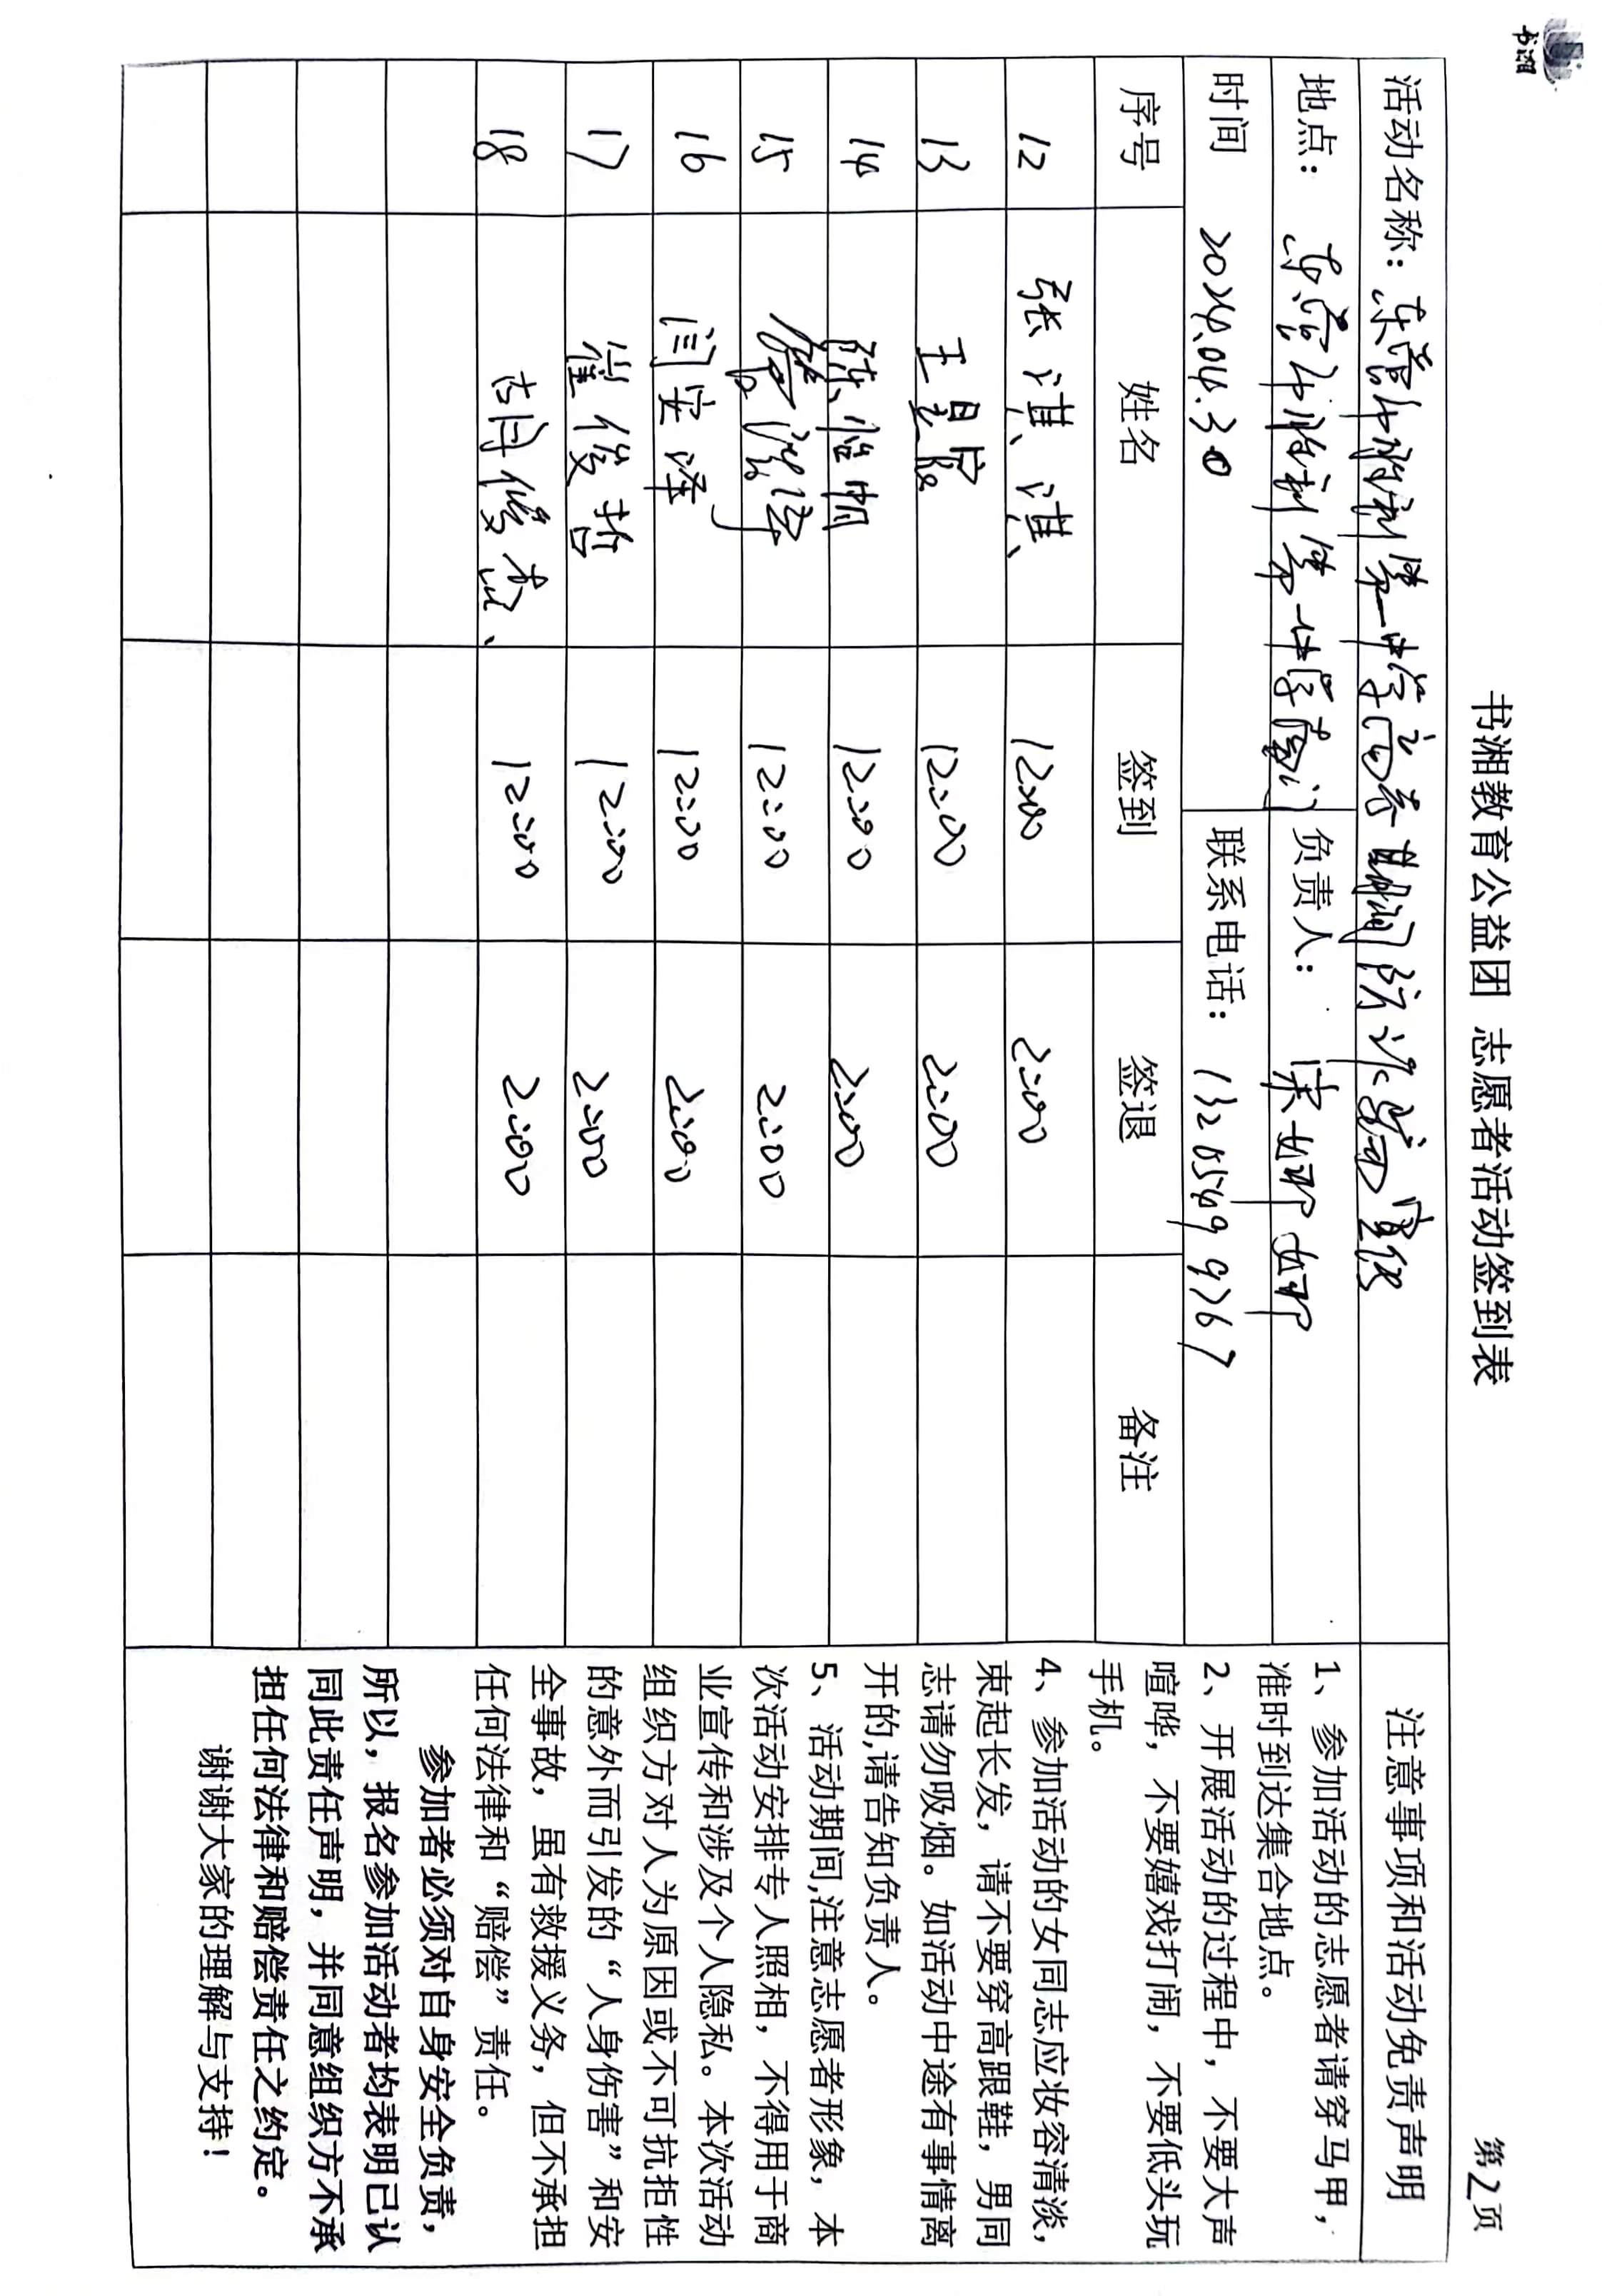 书湘
第2页
书湘教育公益团 志愿者活动签到表
活动名称：东营市胜利第一中学高考期间防骗宣传
注意事项和活动免责声明
地点：东营市胜利第一中学南门
负责人：
时间 2024.04.30
联系电话：
序号 姓名 签到 签退 备注
12 张淇淇 12:00 2:00
13 王 12:00 2:00
14 陈怡帆 12:00 2:00
15 12:00 2:00
16 闫安泽 12:00 2:00
17 崔俊哲 12:00 2:00
18 胡修志 12:00 2:00
1、参加活动的志愿者请穿马甲，
准时到达集合地点。
2、开展活动的过程中，不要大声
喧哗，不要嬉戏打闹，不要低头玩
手机。
4、参加活动的女同志应妆容清淡，
束起长发，请不要穿高跟鞋，男同
志请勿吸烟。如活动中途有事情离
开的,请告知负责人。
5、活动期间,注意志愿者形象，本
次活动安排专人照相，不得用于商
业宣传和涉及个人隐私。本次活动
组织方对人为原因或不可抗拒性
的意外而引发的“人身伤害”和安
全事故，虽有救援义务，但不承担
任何法律和“赔偿”责任。
参加者必须对自身安全负责，
所以，报名参加活动者均表明已认
同此责任声明，并同意组织方不承
担任何法律和赔偿责任之约定。
谢谢大家的理解与支持！